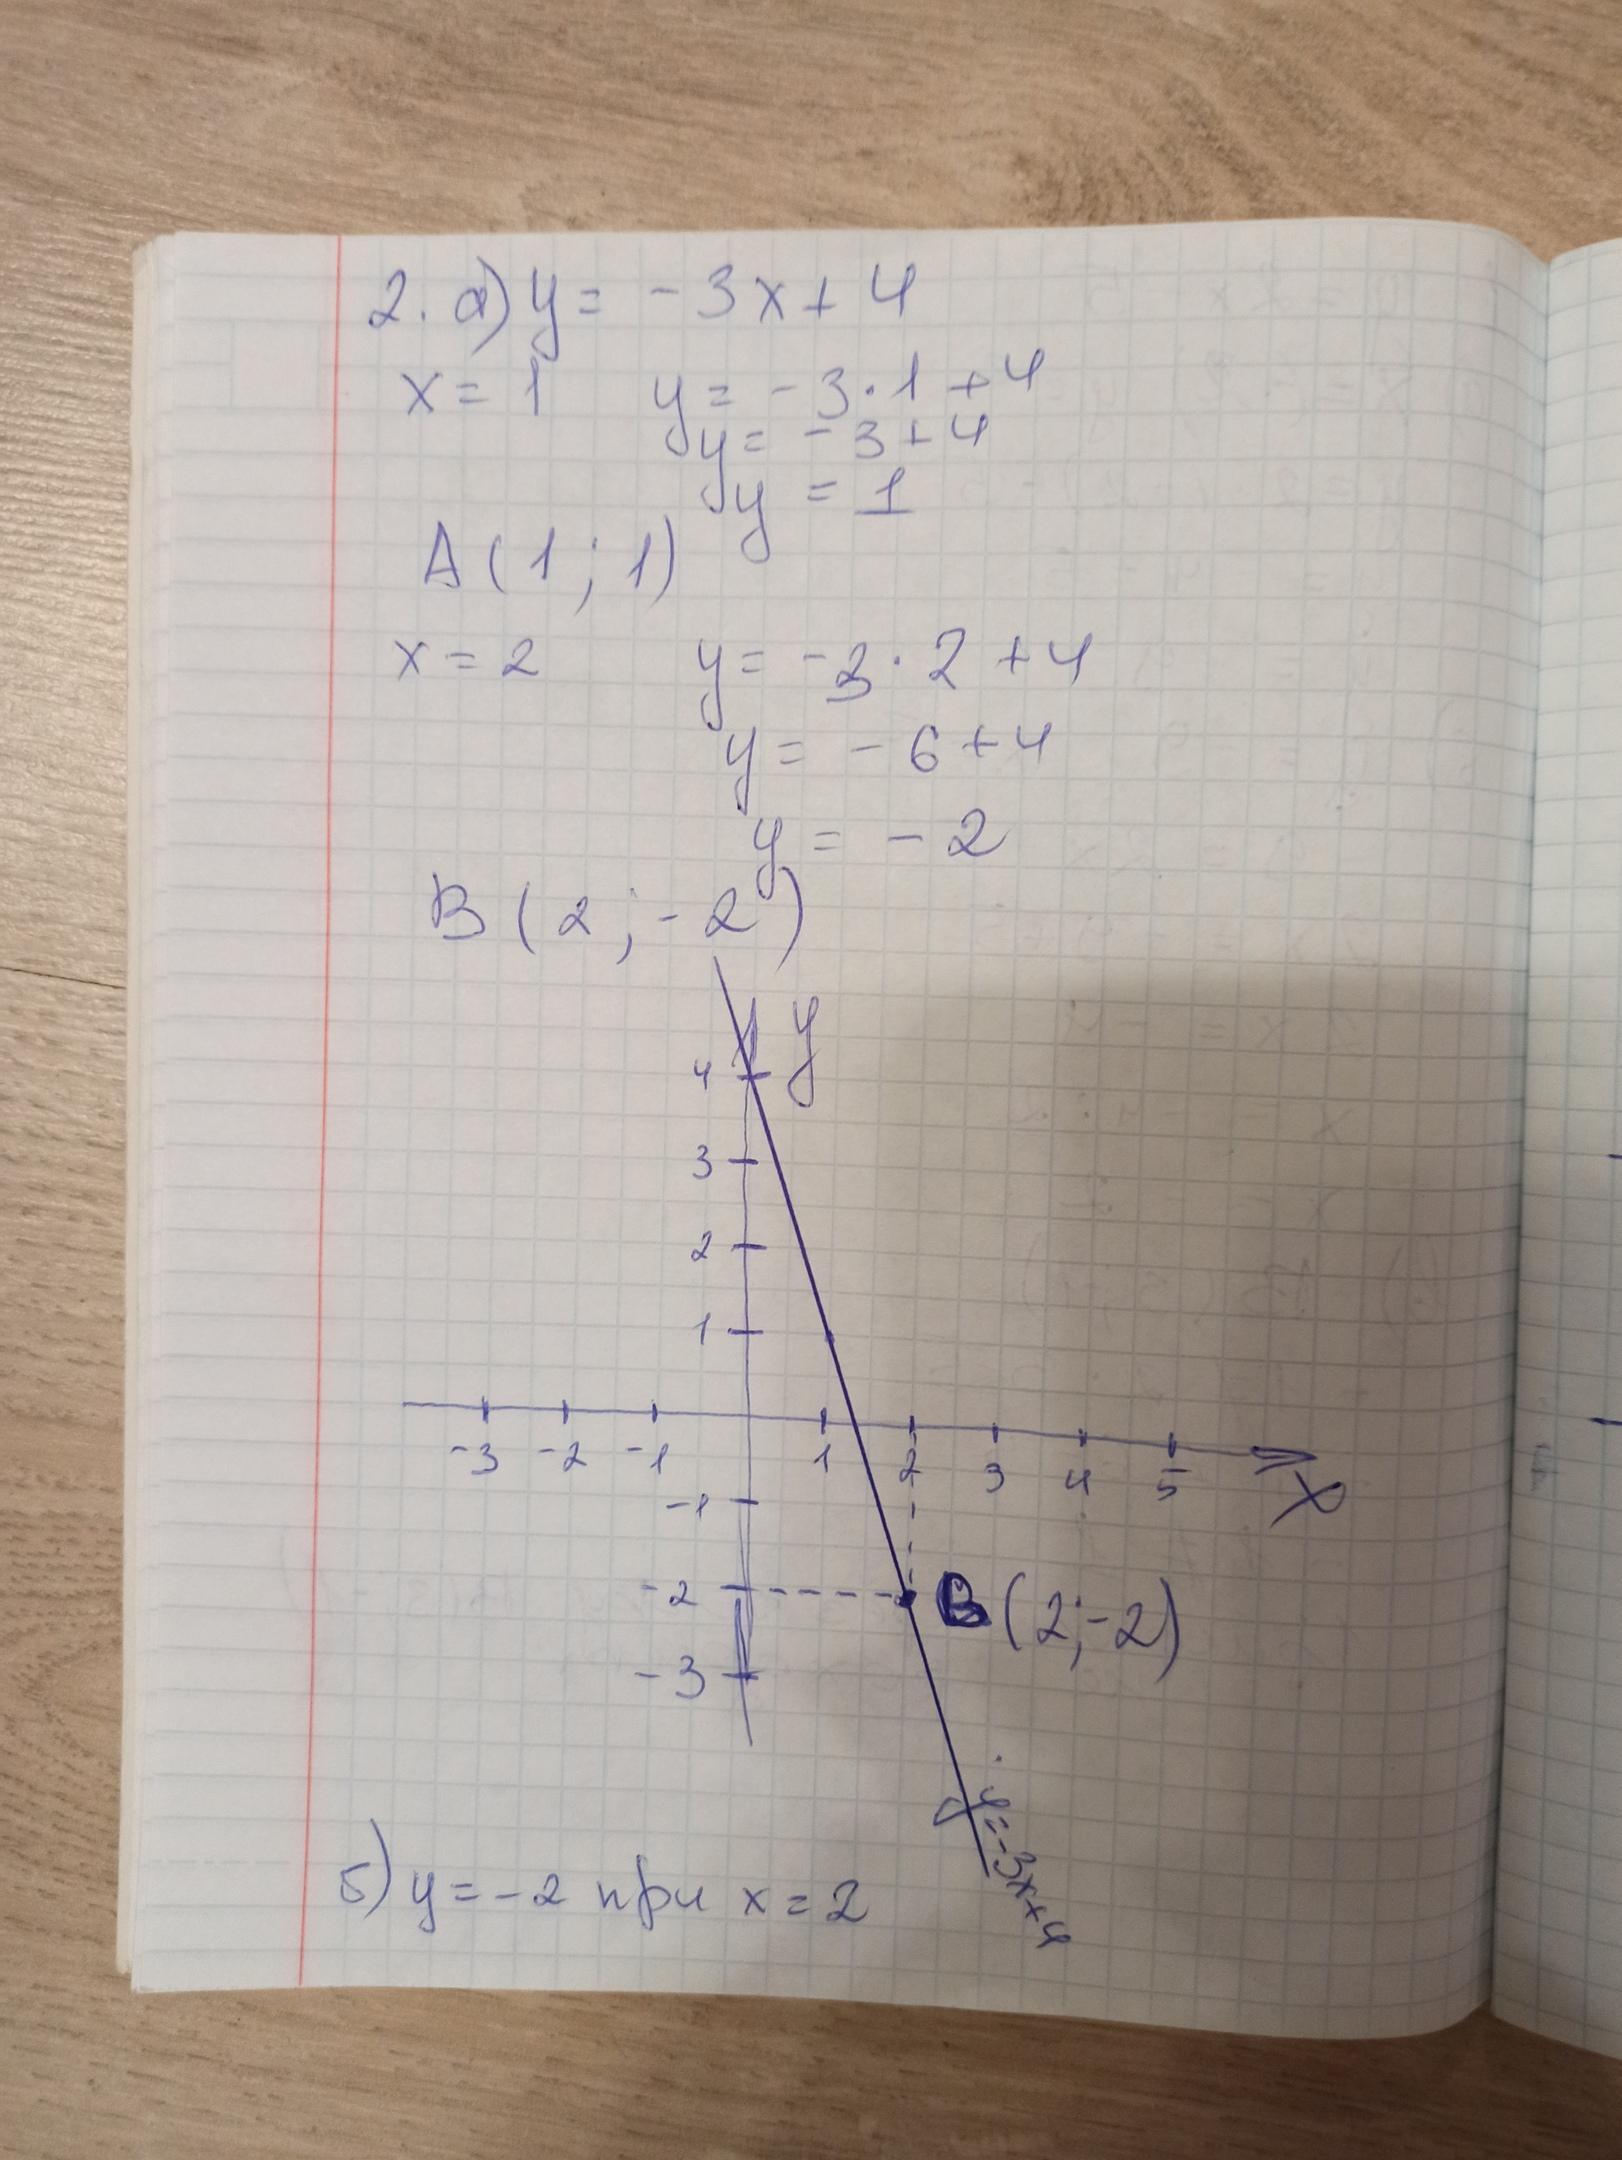 2. а) y = -3x + 4
x = 1 y = -3·1 + 4
y = -3 + 4
y = 1
A (1; 1)
x = 2 y = -3·2 + 4
y = -6 + 4
y = -2
B (2; -2)
y
4
3
2
1
-3 -2 -1 1 2 3 4 5
x
-1
-2
B (2; -2)
-3
y = -3x + 4
б) y = -2 при x = 2